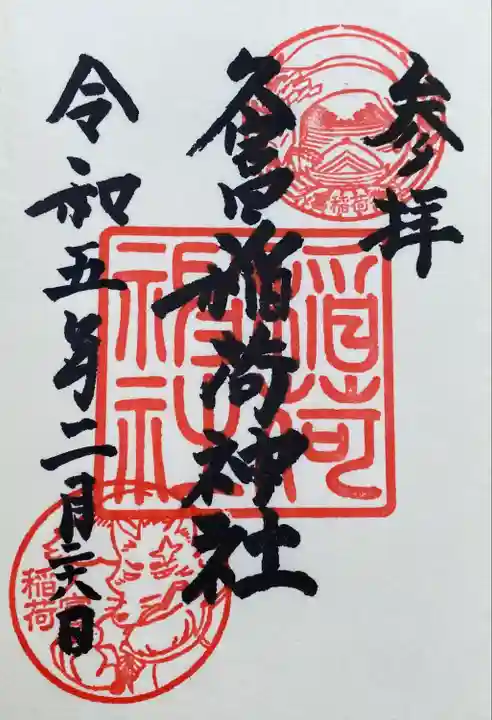 参拝
倉稲荷神社
令和五年二月二六日
稲荷
神社
稲荷
稲荷